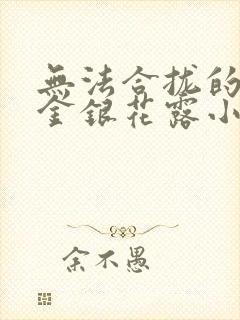 無法合拢的
金銀花露小
余不愚